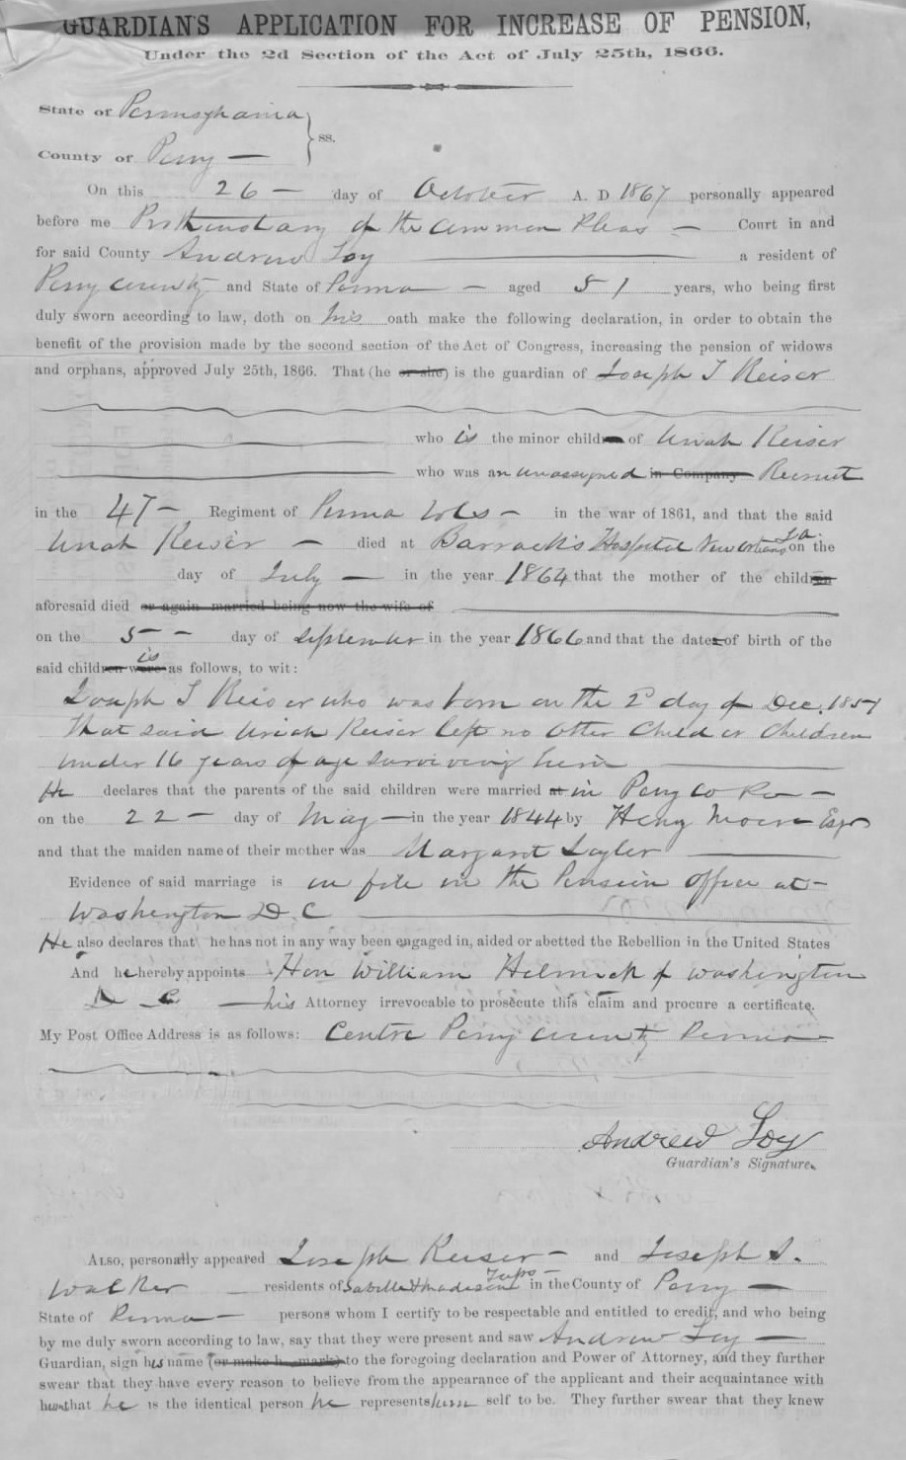 GUARDIAN'S APPLICATION FOR INCREASE OF PENSION,
Under the 2d Section of the Act of July 25th, 1866.
State of Pennsylvania
County of Perry } ss.
On this 26 day of October A. D 1867 personally appeared
before me Prothonotary of the Common Pleas Court in and
for said County Andrew Loy a resident of
Perry County and State of Penna aged 51 years, who being first
duly sworn according to law, doth on his oath make the following declaration, in order to obtain the
benefit of the provision made by the second section of the Act of Congress, increasing the pension of widows
and orphans, approved July 25th, 1866. That (he or she) is the guardian of Joseph T Keiser
who is the minor child of Uriah Keiser
who was an unassigned in Company Recruit
in the 47 Regiment of Penna Vols in the war of 1861, and that the said
Uriah Keiser died at Barracks Hospital New Orleans La on the
day of July in the year 1864 that the mother of the children
aforesaid died or again married being now the wife of
on the 5 day of September in the year 1866 and that the dates of birth of the
said children were is as follows, to wit:
Joseph T Keiser who was born on the 2d day of Dec. 1857
That said Uriah Keiser left no other child or children
under 16 years of age surviving him
He declares that the parents of the said children were married at in Perry Co Pa
on the 22 day of May in the year 1844 by Henry Moore Esqr
and that the maiden name of their mother was Margaret
Evidence of said marriage is on file in the Pension office at
Washington D. C
He also declares that he has not in any way been engaged in, aided or abetted the Rebellion in the United States
And he hereby appoints Hon William Helmick of Washington
D C his Attorney irrevocable to prosecute this claim and procure a certificate.
My Post Office Address is as follows: Centre Perry County Penna
Andrew Loy
Guardian's Signature.
Also, personally appeared Joseph Keiser and Joseph S.
Walker residents of Saville & Madison Twps in the County of Perry
State of Penna persons whom I certify to be respectable and entitled to credit, and who being
by me duly sworn according to law, say that they were present and saw Andrew Loy
Guardian, sign his name (or make h mark) to the foregoing declaration and Power of Attorney, and they further
swear that they have every reason to believe from the appearance of the applicant and their acquaintance with
him that he is the identical person he represents him self to be. They further swear that they knew